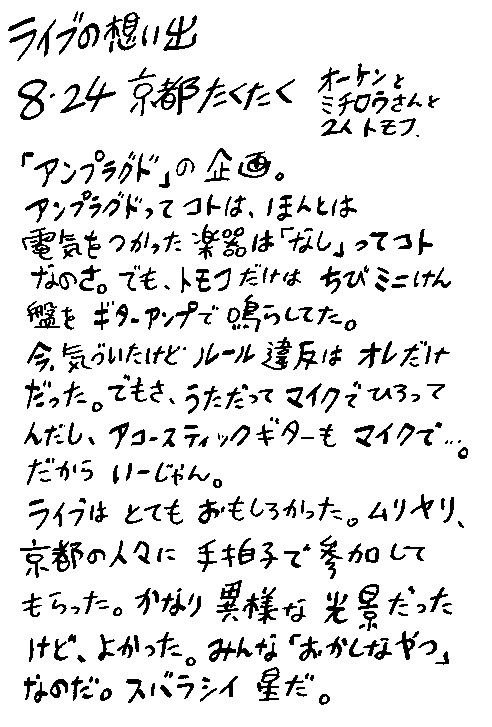 ライブの想い出
8・24 京都たくたく
オーケンと
ミチロウさんと
2人トモフ.
「アンプラグド」の企画。
アンプラグドってコトは、ほんとは
電気をつかった楽器は「なし」ってコト
なのさ。でも、トモフだけは ちびミニけん
盤を ギターアンプで 鳴らしてた。
今、気づいたけど ルール違反は オレだけ
だった。でもさ、うただって マイクでひろって
んだし、アコースティックギターも マイクで…。
だから いーじゃん。
ライブは とても おもしろかった。ムリヤリ、
京都の人々に 手拍子で 参加して
もらった。かなり 異様な 光景だった
けど、よかった。みんな「おかしなやつ」
なのだ。スバラシイ 星だ。